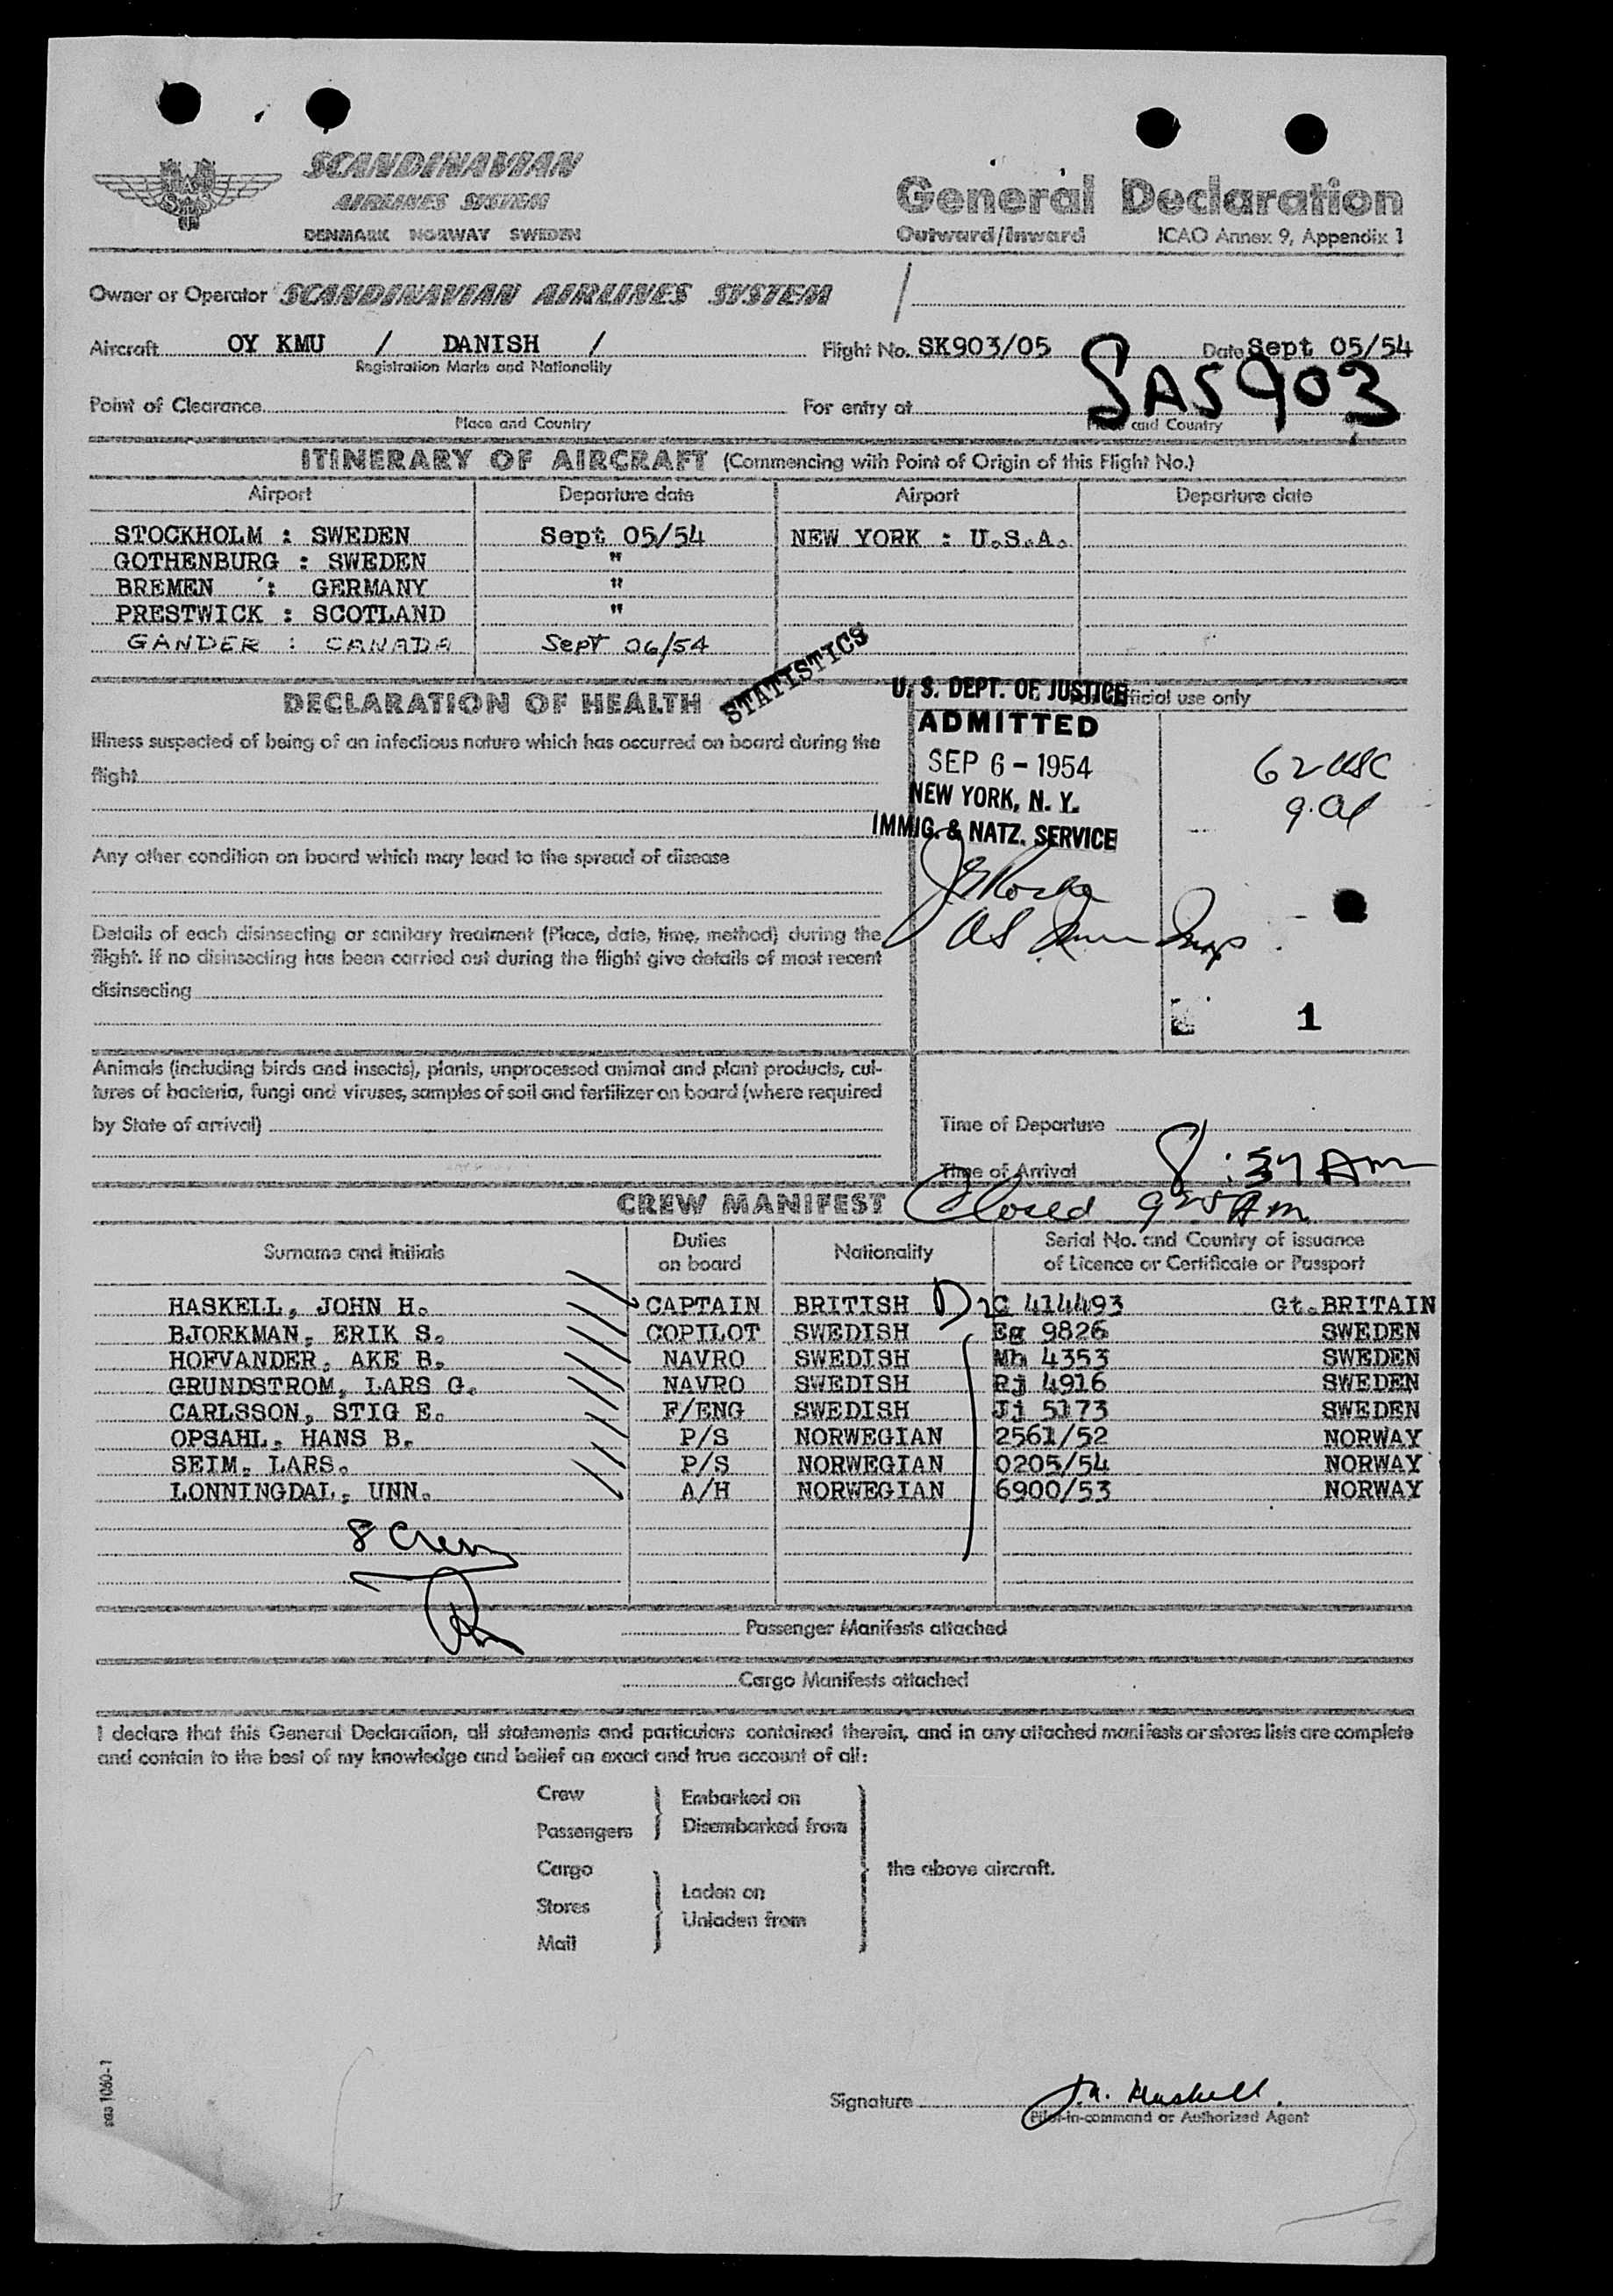 SCANDINAVIAN
AIRLINES SYSTEM
DENMARK NORWAY SWEDEN
SAS
General Declaration
Outward/Inward ICAO Annex 9, Appendix 1
Owner or Operator SCANDINAVIAN AIRLINES SYSTEM /
Aircraft OY KMU / DANISH / Flight No. SK903/05 Date Sept 05/54
Registration Marks and Nationality
SAS 903
Point of Clearance For entry at
Place and Country Place and Country
ITINERARY OF AIRCRAFT (Commencing with Point of Origin of this Flight No.)
Airport Departure date Airport Departure date
STOCKHOLM : SWEDEN Sept 05/54 NEW YORK : U.S.A.
GOTHENBURG : SWEDEN "
BREMEN : GERMANY "
PRESTWICK : SCOTLAND "
GANDER : CANADA Sept 06/54
STATISTICS
DECLARATION OF HEALTH
For official use only
U. S. DEPT. OF JUSTICE
ADMITTED
SEP 6 - 1954
NEW YORK, N. Y.
IMMIG. & NATZ. SERVICE
62 USC
9
1
Illness suspected of being of an infectious nature which has occurred on board during the
flight
Any other condition on board which may lead to the spread of disease
Details of each disinsecting or sanitary treatment (Place, date, time, method) during the
flight. If no disinsecting has been carried out during the flight give details of most recent
disinsecting
Animals (including birds and insects), plants, unprocessed animal and plant products, cul-
tures of bacteria, fungi and viruses, samples of soil and fertilizer on board (where required
by State of arrival)
Time of Departure
Time of Arrival 8:37 Am
Closed 925 Am
CREW MANIFEST
Surname and initials Duties on board Nationality Serial No. and Country of issuance of Licence or Certificate or Passport
HASKELL, JOHN H. CAPTAIN BRITISH C 414493 Gt.BRITAIN
BJORKMAN, ERIK S. COPILOT SWEDISH Eg 9826 SWEDEN
HOFVANDER, AKE B. NAVRO SWEDISH Mh 4353 SWEDEN
GRUNDSTROM, LARS G. NAVRO SWEDISH Rj 4916 SWEDEN
CARLSSON, STIG E. F/ENG SWEDISH Jj 5173 SWEDEN
OPSAHL, HANS B. P/S NORWEGIAN 2561/52 NORWAY
SEIM, LARS. P/S NORWEGIAN 0205/54 NORWAY
LONNINGDAL, UNN. A/H NORWEGIAN 6900/53 NORWAY
8 Crew
Passenger Manifests attached
Cargo Manifests attached
I declare that this General Declaration, all statements and particulars contained therein, and in any attached manifests or stores lists are complete
and contain to the best of my knowledge and belief an exact and true account of all:
Crew
Passengers
Embarked on
Disembarked from
Cargo
Stores
Mail
Laden on
Unladen from
the above aircraft.
Signature J.H. Haskell.
Pilot-in-command or Authorized Agent
sas 1060-1